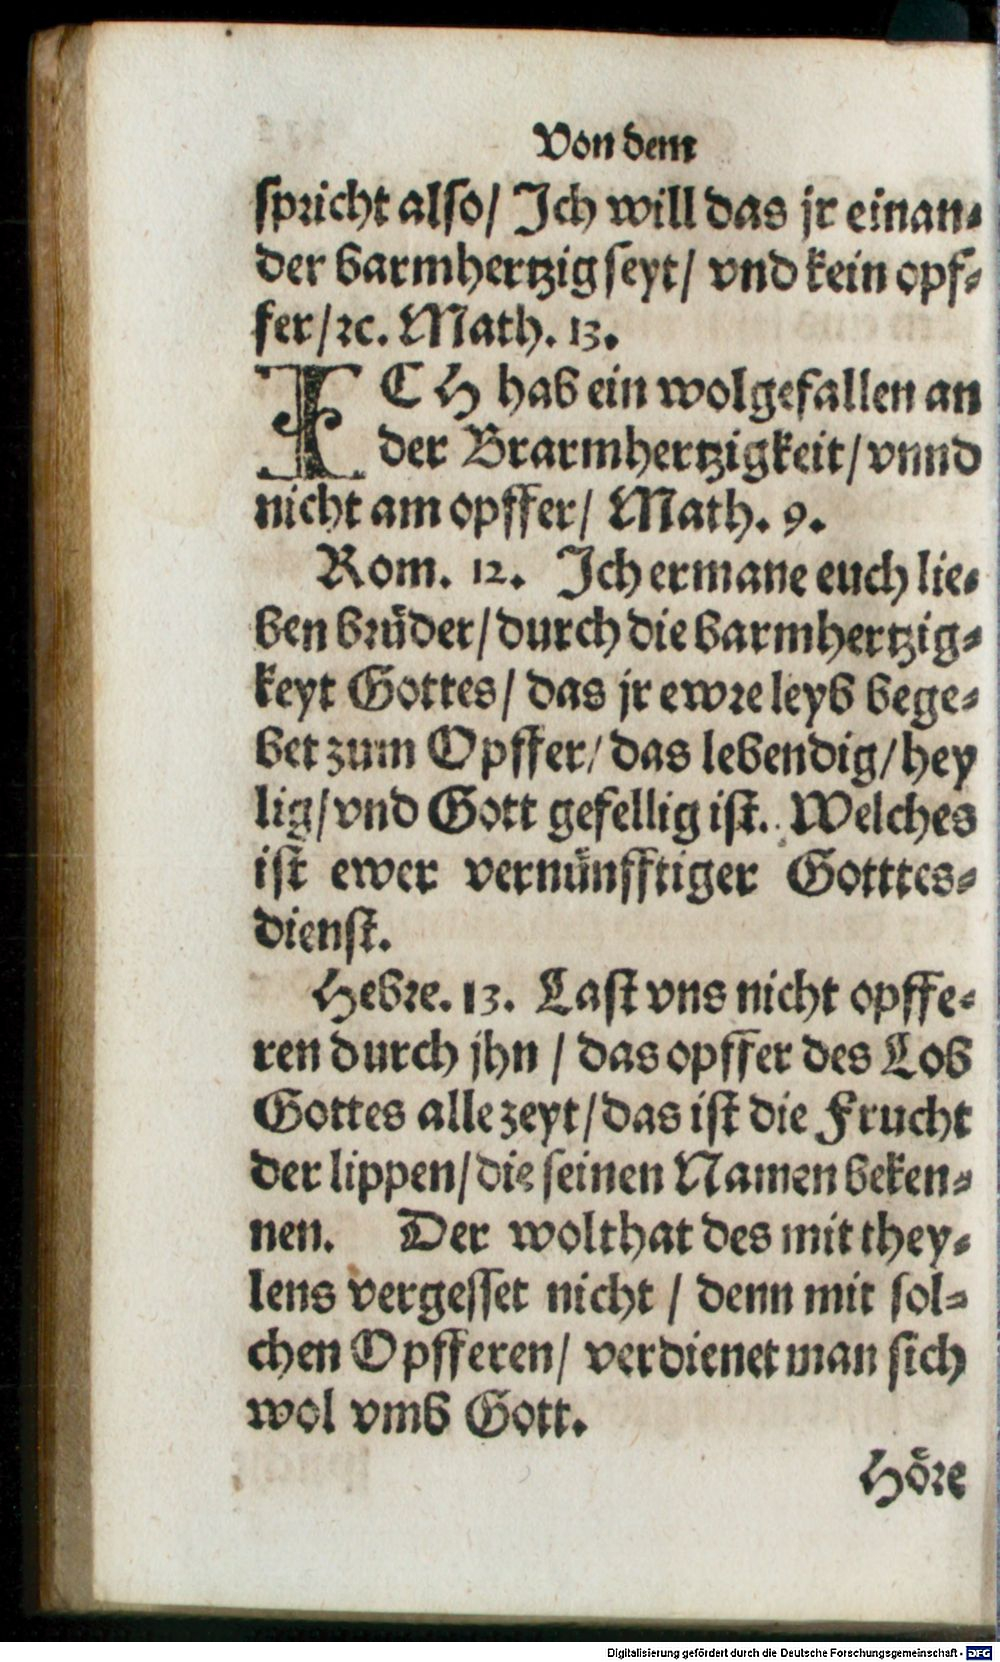 Von dem
spricht also/ Ich will das jr einan-
der barmhertzig seyt/ vnd kein opf-
fer/ ꝛc. Math. 13.
ICH hab ein wolgefallen an
der Brarmhertzigkeit/ vnnd
nicht am opffer/ Math. 9.
Rom. 12. Ich ermane euch lie-
ben brüder/ durch die barmhertzig-
keyt Gottes/ das jr ewre leyb bege-
bet zum Opffer/ das lebendig/ hey
lig/ vnd Gott gefellig ist. Welches
ist ewer vernünfftiger Gotttes-
dienst.
Hebre. 13. Last vns nicht opffe-
ren durch jhn / das opffer des Lob
Gottes alle zeyt/ das ist die Frucht
der lippen/ die seinen Namen beken-
nen. Der wolthat des mit they-
lens vergesset nicht / denn mit sol-
chen Opfferen/ verdienet man sich
wol vmb Gott.
Höre
Digitalisierung gefördert durch die Deutsche Forschungsgemeinschaft - DFG